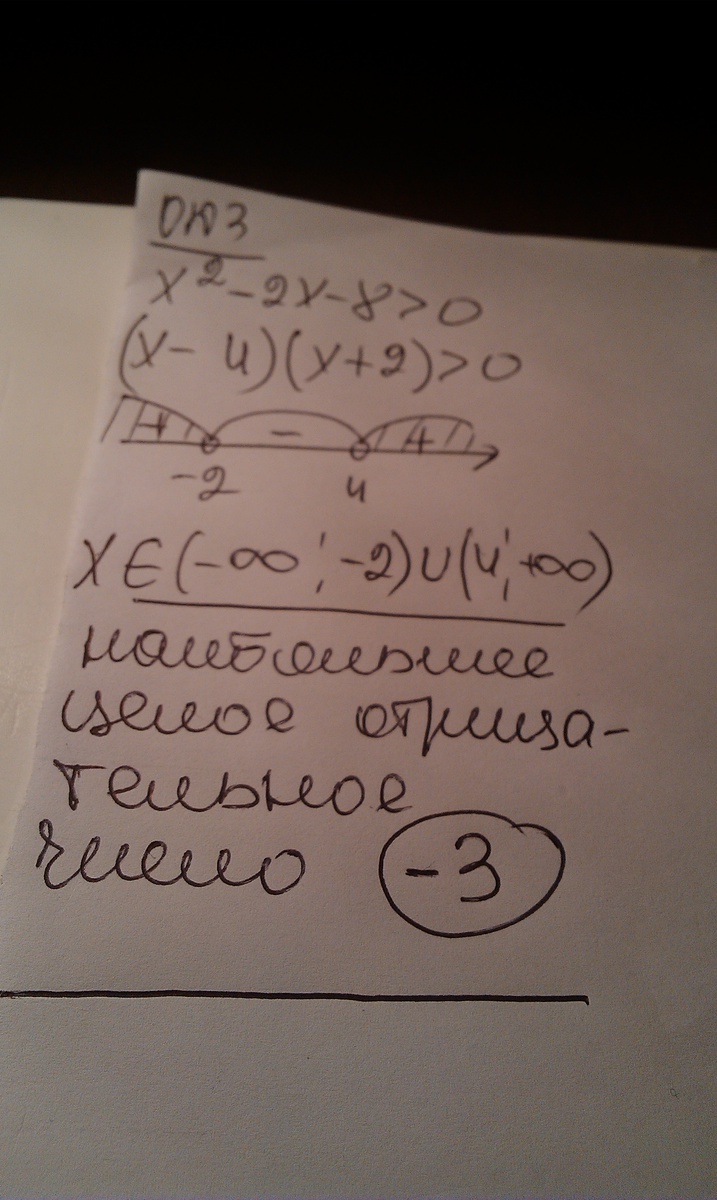 ОЮЗ
x² - 2x - 8 > 0
(x - 4)(x + 2) > 0
+ - +
-2 4
x ∈ (-∞; -2) ∪ (4; +∞)
наибольшее
целое отрица-
тельное
число -3